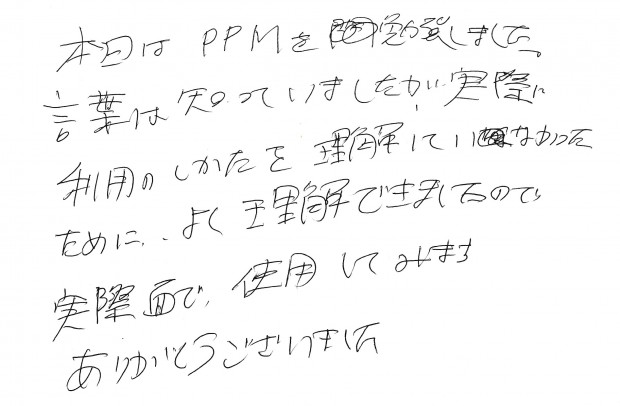 本日はPPMを勉強しました。
言葉は知っていましたが、実際に
利用のしかたを理解していなかった
ために、よく理解できましたので、
実際面で、使用してみます
ありがとうございました